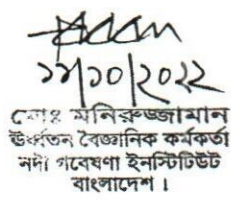 ১১/১০/২০২২
মোঃ মনিরুজ্জামান
ঊর্ধ্বতন বৈজ্ঞানিক কর্মকর্তা
নদী গবেষণা ইনস্টিটিউট
বাংলাদেশ ।